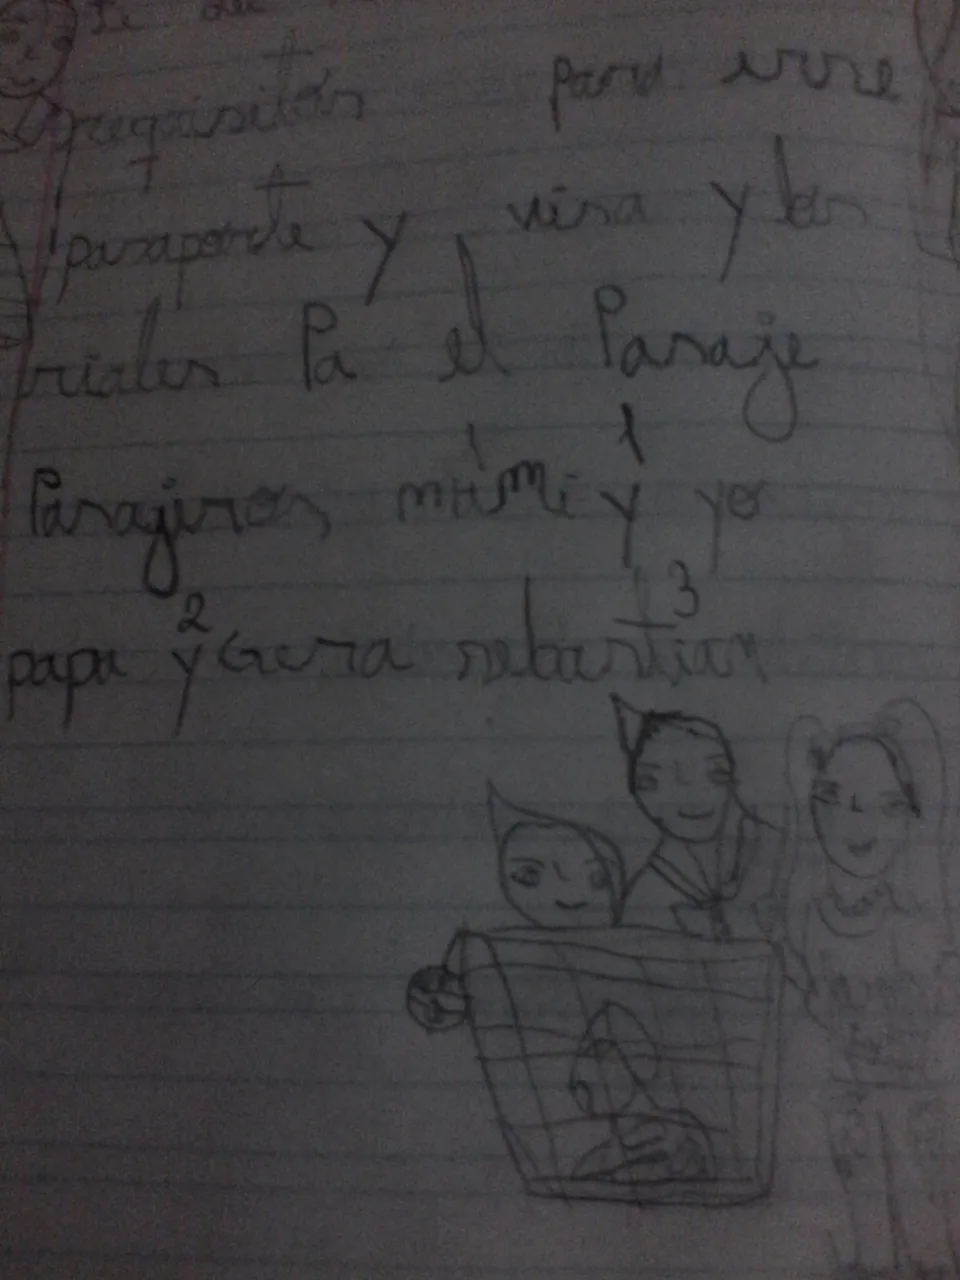 reqasitos para irre
pasaporte y visa y los
riales Pa el Pasaje
Pasajiros, mami y yo
2 3
papa y Gera sebastian